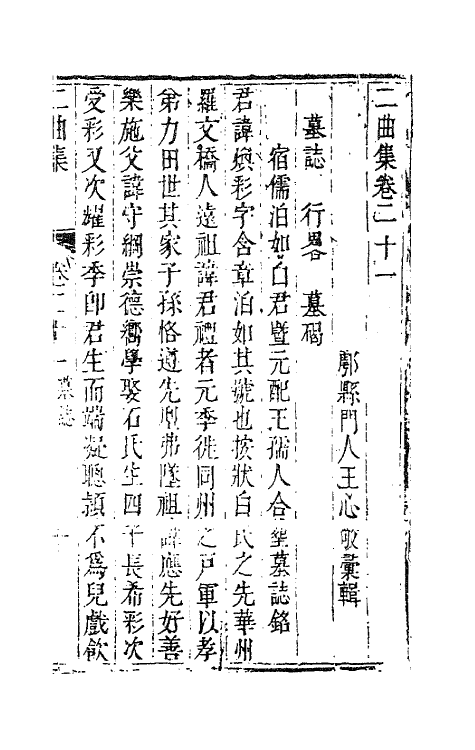 二曲集卷二十一
鄠縣門人王心敬彙輯
墓誌　行畧　墓碣
宿儒泊如白君暨元配王孺人合塟墓誌銘
君諱煥彩字含章泊如其號也按狀白氏之先華州
羅文橋人遠祖諱君禮者元季徙同州之戸軍以孝
弟力田世其家子孫恪遵先訓弗墜祖諱應先好善
樂施父諱守綱崇德嚮學娶石氏生四子長希彩次
受彩又次耀彩季即君生而端凝聰頴不爲兒戲飲
二曲集
卷二十一 墓誌